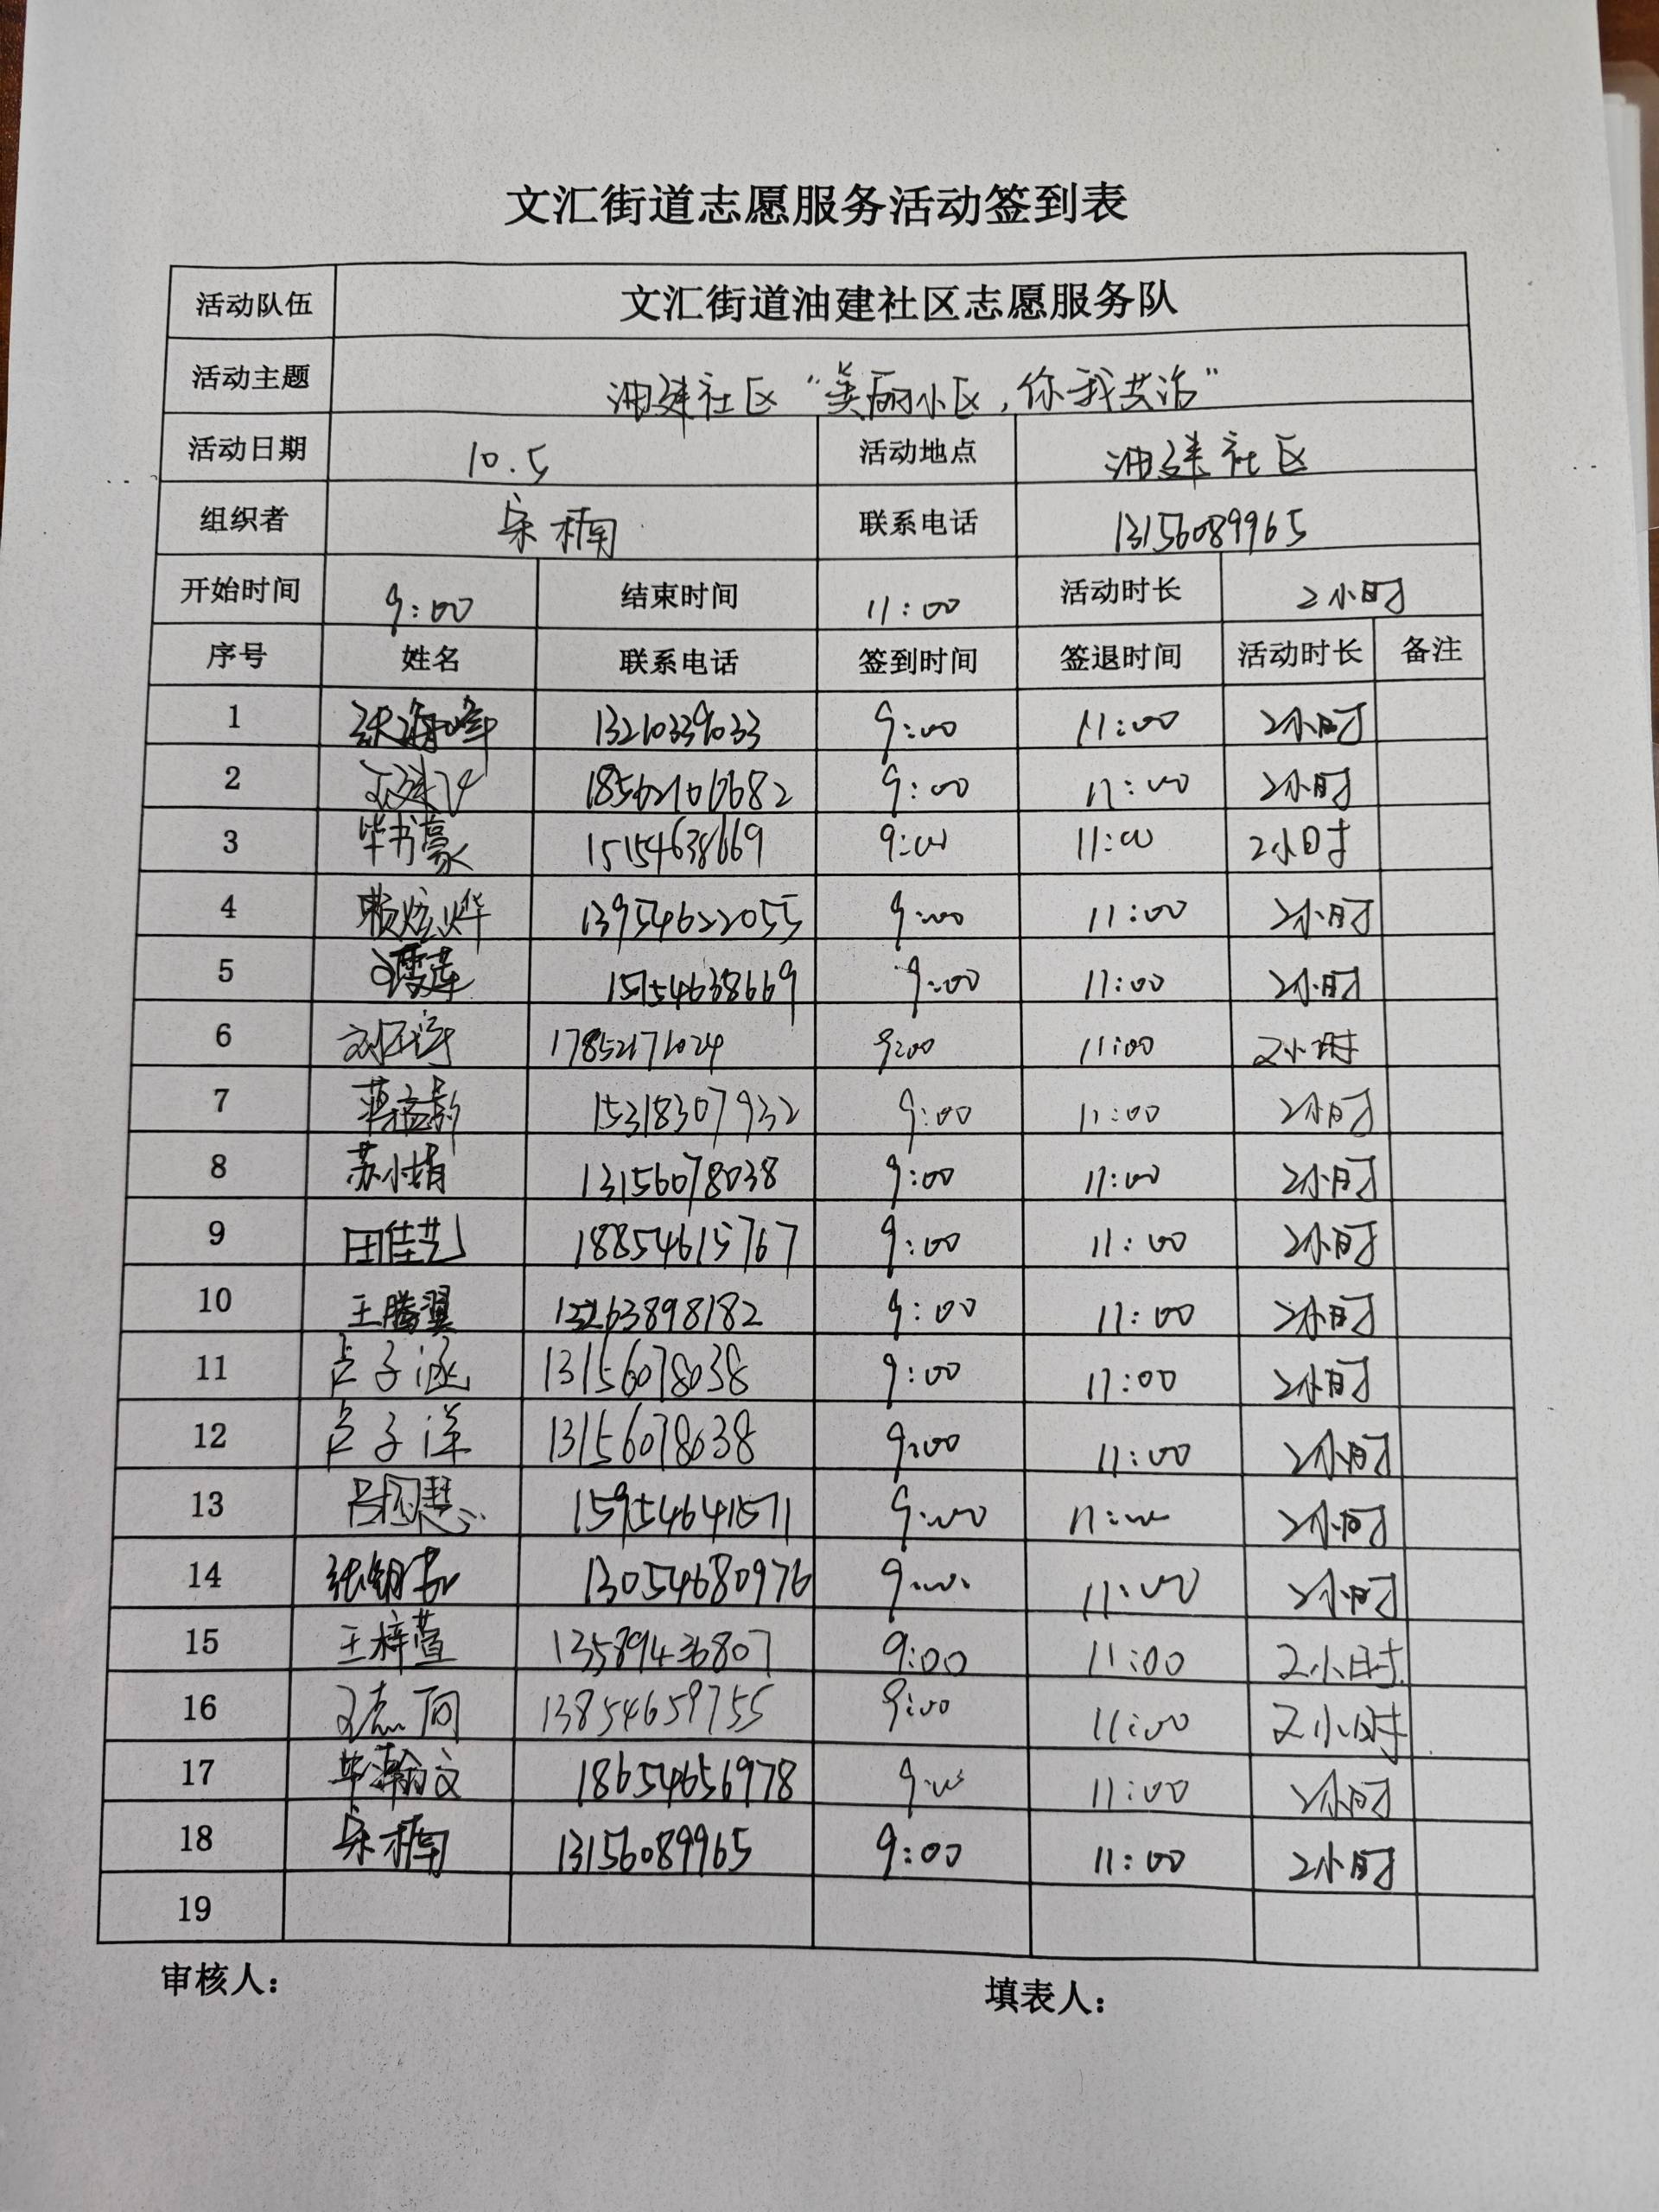 文汇街道志愿服务活动签到表
活动队伍 文汇街道油建社区志愿服务队
活动主题 油建社区“美丽小区,你我共治”
活动日期 10.5 活动地点 油建社区
组织者 宋楠 联系电话 13156089965
开始时间 9:00 结束时间 11:00 活动时长 2小时
序号 姓名 联系电话 签到时间 签退时间 活动时长 备注
1 张海峰 13210339033 9:00 11:00 2小时
2 9:00 11:00 2小时
3 毕书豪 15154638669 9:00 11:00 2小时
4 赖炫烨 13954622055 9:00 11:00 2小时
5 15154638669 9:00 11:00 2小时
6 17852171024 9:00 11:00 2小时
7 15318307932 9:00 11:00 2小时
8 苏小娟 13156078038 9:00 11:00 2小时
9 田佳艺 18854615767 9:00 11:00 2小时
10 王腾翼 13263898182 9:00 11:00 2小时
11 卢子涵 13156078038 9:00 11:00 2小时
12 卢子洋 13156078038 9:00 11:00 2小时
13 15954641571 9:00 11:00 2小时
14 13054680976 9:00 11:00 2小时
15 王梓萱 13589436807 9:00 11:00 2小时
16 13854659755 9:00 11:00 2小时
17 毕瀚文 18654656978 9:00 11:00 2小时
18 宋楠 13156089965 9:00 11:00 2小时
19
审核人: 填表人: